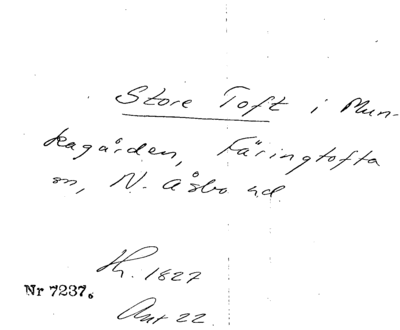 Store Toft i Mun-
kagården, Färingtofta
sn, N. Åsbo hd.
h. 1827
Nr 7237.
Ant 22